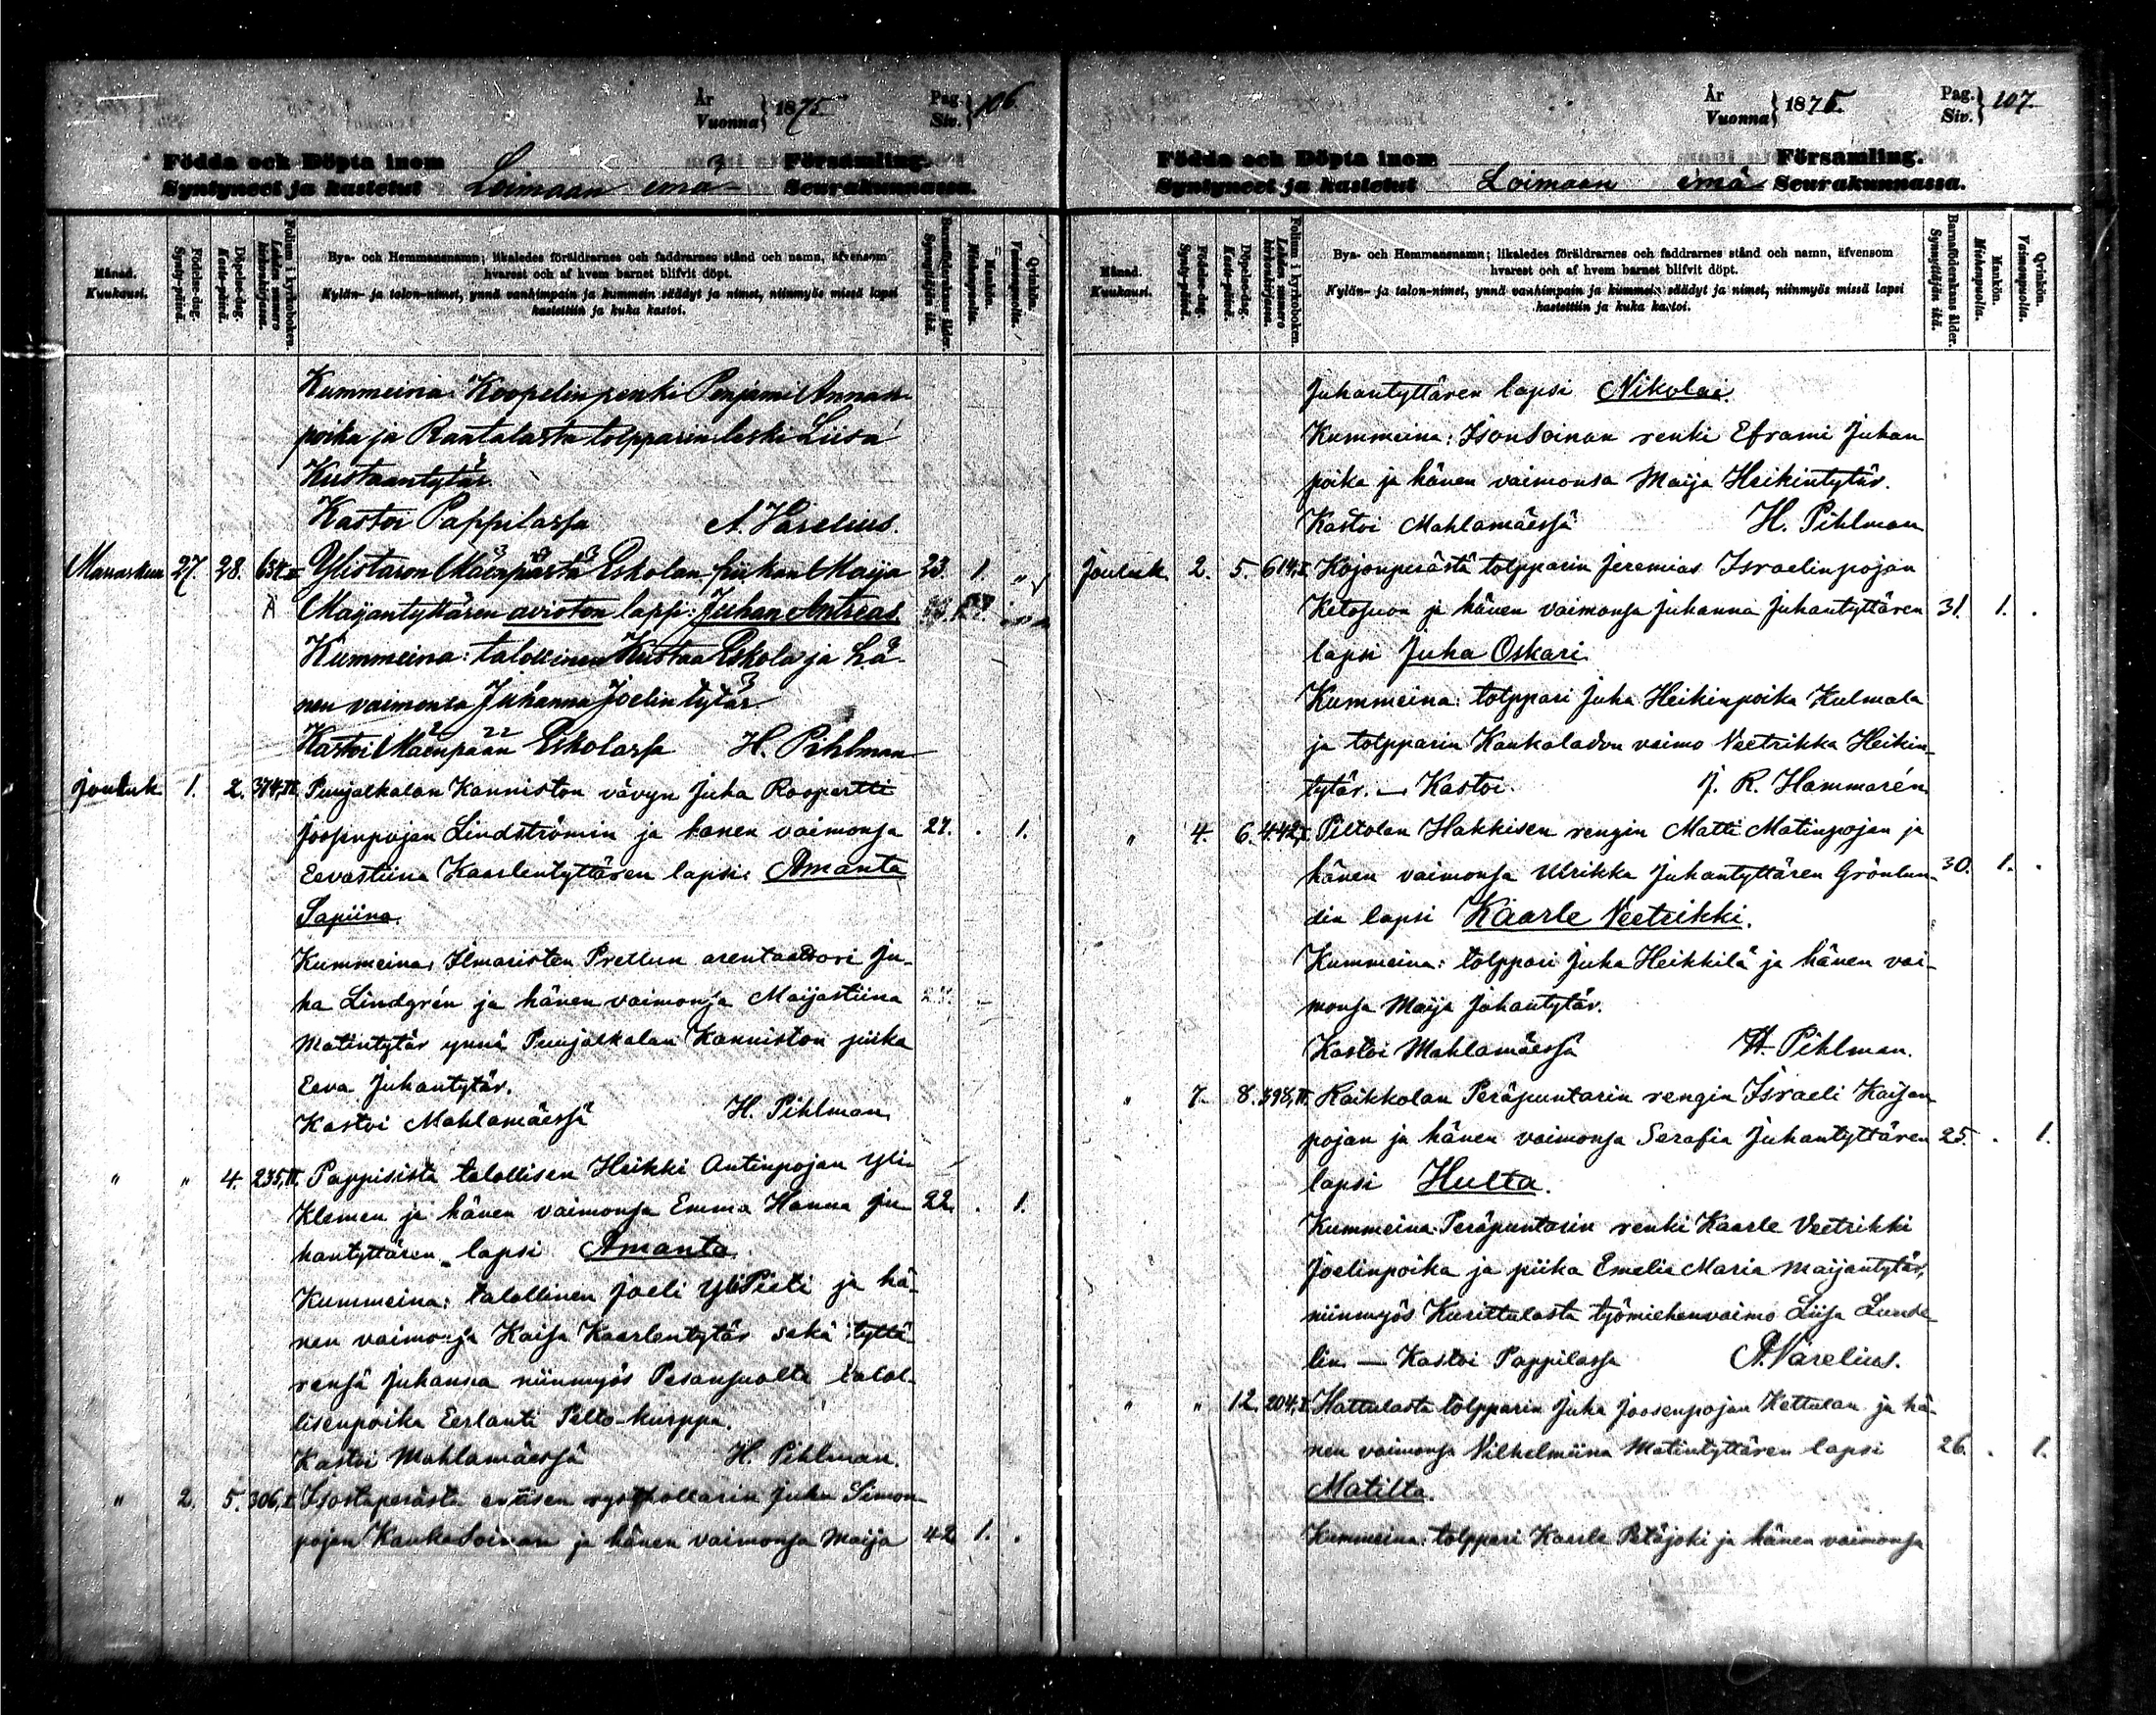 År
Vuonna } 1875.
Pag.
Siv. } 106.
Födda och Döpta inom Församling.
Syntyneet ja kastetut Loimaan emä- Seurakunnassa.
Månad.
Kuukausi.
Födelse-dag.
Synty-päivä.
Döpelse-dag.
Kaste-päivä.
Folium i kyrkoboken.
Lehden numero kirkonkirjassa.
Bya- och Hemmansnamn; likaledes föräldrarnes och faddrarnes stånd och namn, äfvensom
hvarest och af hvem barnet blifvit döpt.
Kylän- ja talon-nimet, ynnä vanhimpain ja kummein säädyt ja nimet, niinmyös missä lapsi
kastettiin ja kuka kastoi.
Barnaföderskans ålder.
Synnyttäjän ikä.
Mankön.
Miehenpuolia.
Qvinkön.
Vaimonpuolia.
Kummeina: Koopelin renki Penjami Annan
poika ja Rantalasta tolpparin leski Liisa
Kustaantytär
Kastoi Pappilassa A. Varelius.
Marraskuu 27. 28. 634. Ylistaron Mäenpäästä Eskolan piikan Maija 23. 1. "
Maijantyttären aviston laps: Juhan Antreas.
Kummeina: talollinen Kustaa Eskola ja hä-
nen vaimonsa Juhanna Joelin tytär
Kastoi Mäenpään Eskolassa H. Pihlman
Jouluk. 1. 2. 374, III. Puujalkalan Kanniston vävyn Juha Roopertti
Joosepinpojan Lindströmin ja hänen vaimonsa 27. . 1.
Eevastiina Kaarlentyttären lapsi: Amanta
Sapiina.
Kummeina: Ilmaristen Prellun arentaattori Ju-
ha Lindgrén ja hänen vaimonsa Maijastiina
Matintytär ynnä Puujalkalan Kanniston piika
Eeva Juhantytär.
Kastoi Mahlamäessä H. Pihlman
" " 4. 235, II. Pappisista talollisen Heikki Antinpojan Yli-
Klemen ja hänen vaimonsa Emma Hanna Ju- 22. . 1.
hantyttären lapsi Amanta.
Kummeina: talollinen Joeli YliPieti ja hä-
nen vaimonsa Kaisa Kaarlentytär sekä tyttä-
rensä Juhanna niinmyös Pesänsuolta talol-
lisenpoika Eerlanti Pelto-kurppa.
Kastoi Mahlamäessä H. Pihlman.
" 2. 5. 306, I. Isostaperästä Juha Simon-
pojan KaukaSoinan ja hänen vaimonsa Maija 42 1. .
År
Vuonna } 1875.
Pag.
Siv. } 107.
Födda och Döpta inom Församling.
Syntyneet ja kastetut Loimaan emä- Seurakunnassa.
Månad.
Kuukausi.
Födelse-dag.
Synty-päivä.
Döpelse-dag.
Kaste-päivä.
Folium i kyrkoboken.
Lehden numero kirkonkirjassa.
Bya- och Hemmansnamn; likaledes föräldrarnes och faddrarnes stånd och namn, äfvensom
hvarest och af hvem barnet blifvit döpt.
Kylän- ja talon-nimet, ynnä vanhimpain ja kummein säädyt ja nimet, niinmyös missä lapsi
kastettiin ja kuka kastoi.
Barnaföderskans ålder.
Synnyttäjän ikä.
Mankön.
Miehenpuolia.
Qvinkön.
Vaimonpuolia.
Juhantyttären lapsi Nikolai.
Kummeina: IsonSoinan renki Eframi Juhan
poika ja hänen vaimonsa Maija Heikintytär.
Kastoi Mahlamäessä H. Pihlman
Jouluk. 2. 5. 614, I. Kojonperästä tolpparin Jeremias Israelinpojan
Ketosuon ja hänen vaimonsa Juhanna Juhantyttären 31. 1. .
lapsi Juha Oskari.
Kummeina: tolppari Juha Heikinpoika Kulmala
ja tolpparin Kaukaladon vaimo Veetrikka Heikin-
tytär. — Kastoi. J. R. Hammarén
" 4. 6. 442, I. Peltolan Hakkisen rengin Matti Matinpojan ja
hänen vaimonsa Ulrikka Juhantyttären Grönlun- 30. 1. .
din lapsi Kaarle Veetrikki.
Kummeina: tolppari Juha Heikkilä ja hänen vai-
monsa Maija Juhantytär.
Kastoi Mahlamäessä H. Pihlman.
" 7. 8. 398, II. Raikkolan Peräpuntarin rengin Israeli Kaisan
pojan ja hänen vaimonsa Serafia Juhantyttären 25. . 1.
lapsi Hulta.
Kummeina Peräpuntarin renki Kaarle Veetrikki
Joelinpoika ja piika Emelie Maria Maijantytär,
niinmyös Kurittulasta työmiehenvaimo Liisa Lunde-
lin. — Kastoi Pappilassa A. Varelius.
" " 12. 204, I. Hattulasta tolpparin Juha Joosenpojan Kettulan ja hä-
nen vaimonsa Vilhelmiina Matintyttären lapsi 26. . 1.
Matilta.
Kummeina: tolppari Kaarle Petäjoki ja hänen vaimonsa